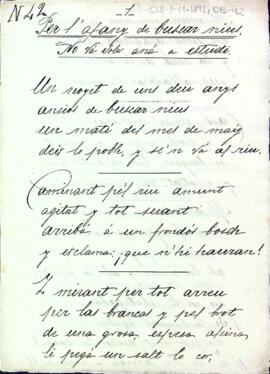 Nº 42
-1-
CLS-1-11-1892, OB-42
Per l'afany de buscar nius,
No vá voler aná a estudi.
Un noyet de uns deu anys
ansiós de buscar nius
un matí del mes de maig
deix lo poble, y se'n vá al riu.
Caminant pe'l riu amunt
agitat y tot suant
arribá á un fondós bosch
y esclama: ¡que n'hi hauran!
Y mirant per tot arreu
per las brancas y pe'l brot
de una grosa, espesa alsina
li pegá un salt lo cor,